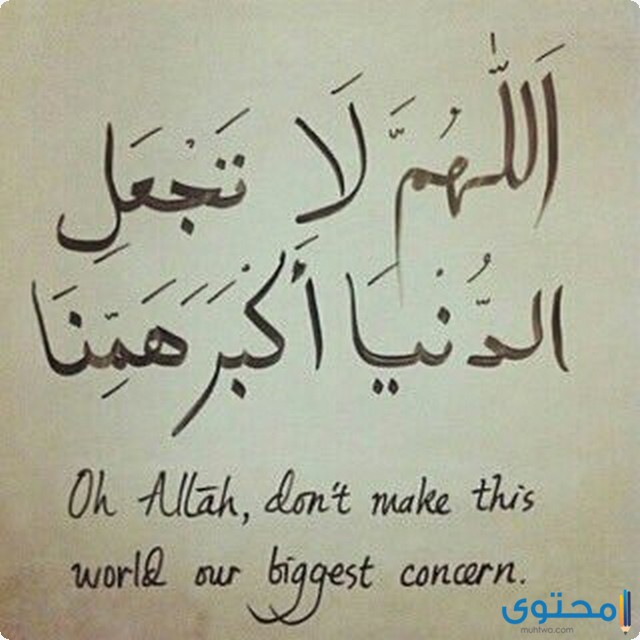 اَللّٰهُمَّ لَا تَجْعَلِ
الدُّنْيَا أَكْبَرَ هَمِّنَا
Oh Allāh, don't make this
world our biggest concern.
محتوى
muhtwa.com